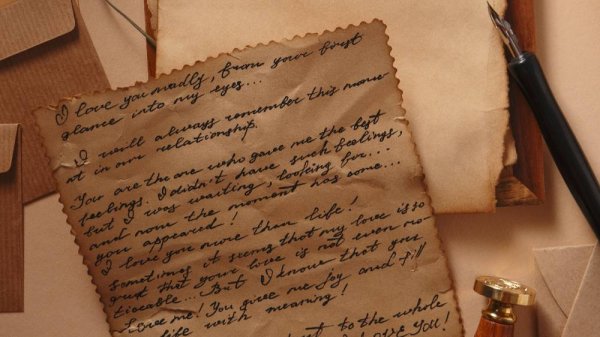 I love you madly, from your first
glance into my eyes...
I will always remember this mome
nt in our relationship.
You are the one who gave me the best
feelings. I didn't have such feelings,
but I was waiting, looking for...
and now the moment has come...
you appeared!
I love you more than life!
Sometimes it seems that my love is so
great that your love is not even no
ticeable... But I know that you
love me! You give me joy and fill
life with meaning!
to the whole
LOVE YOU!